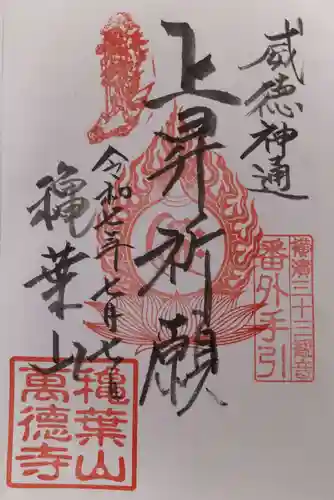 威徳神通
上昇祈願
令和七年七月七日
穐葉山
横濱三十三観音
番外手引
穐葉山
萬德寺